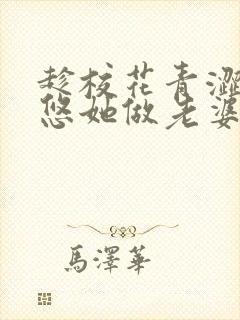 趁校花青澀
悠她做老婆
馬澤華